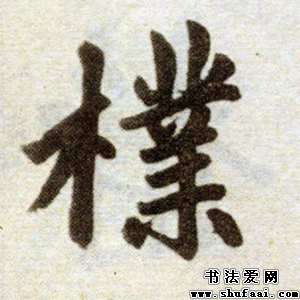 樸
书法爱网
www.shufaai.com